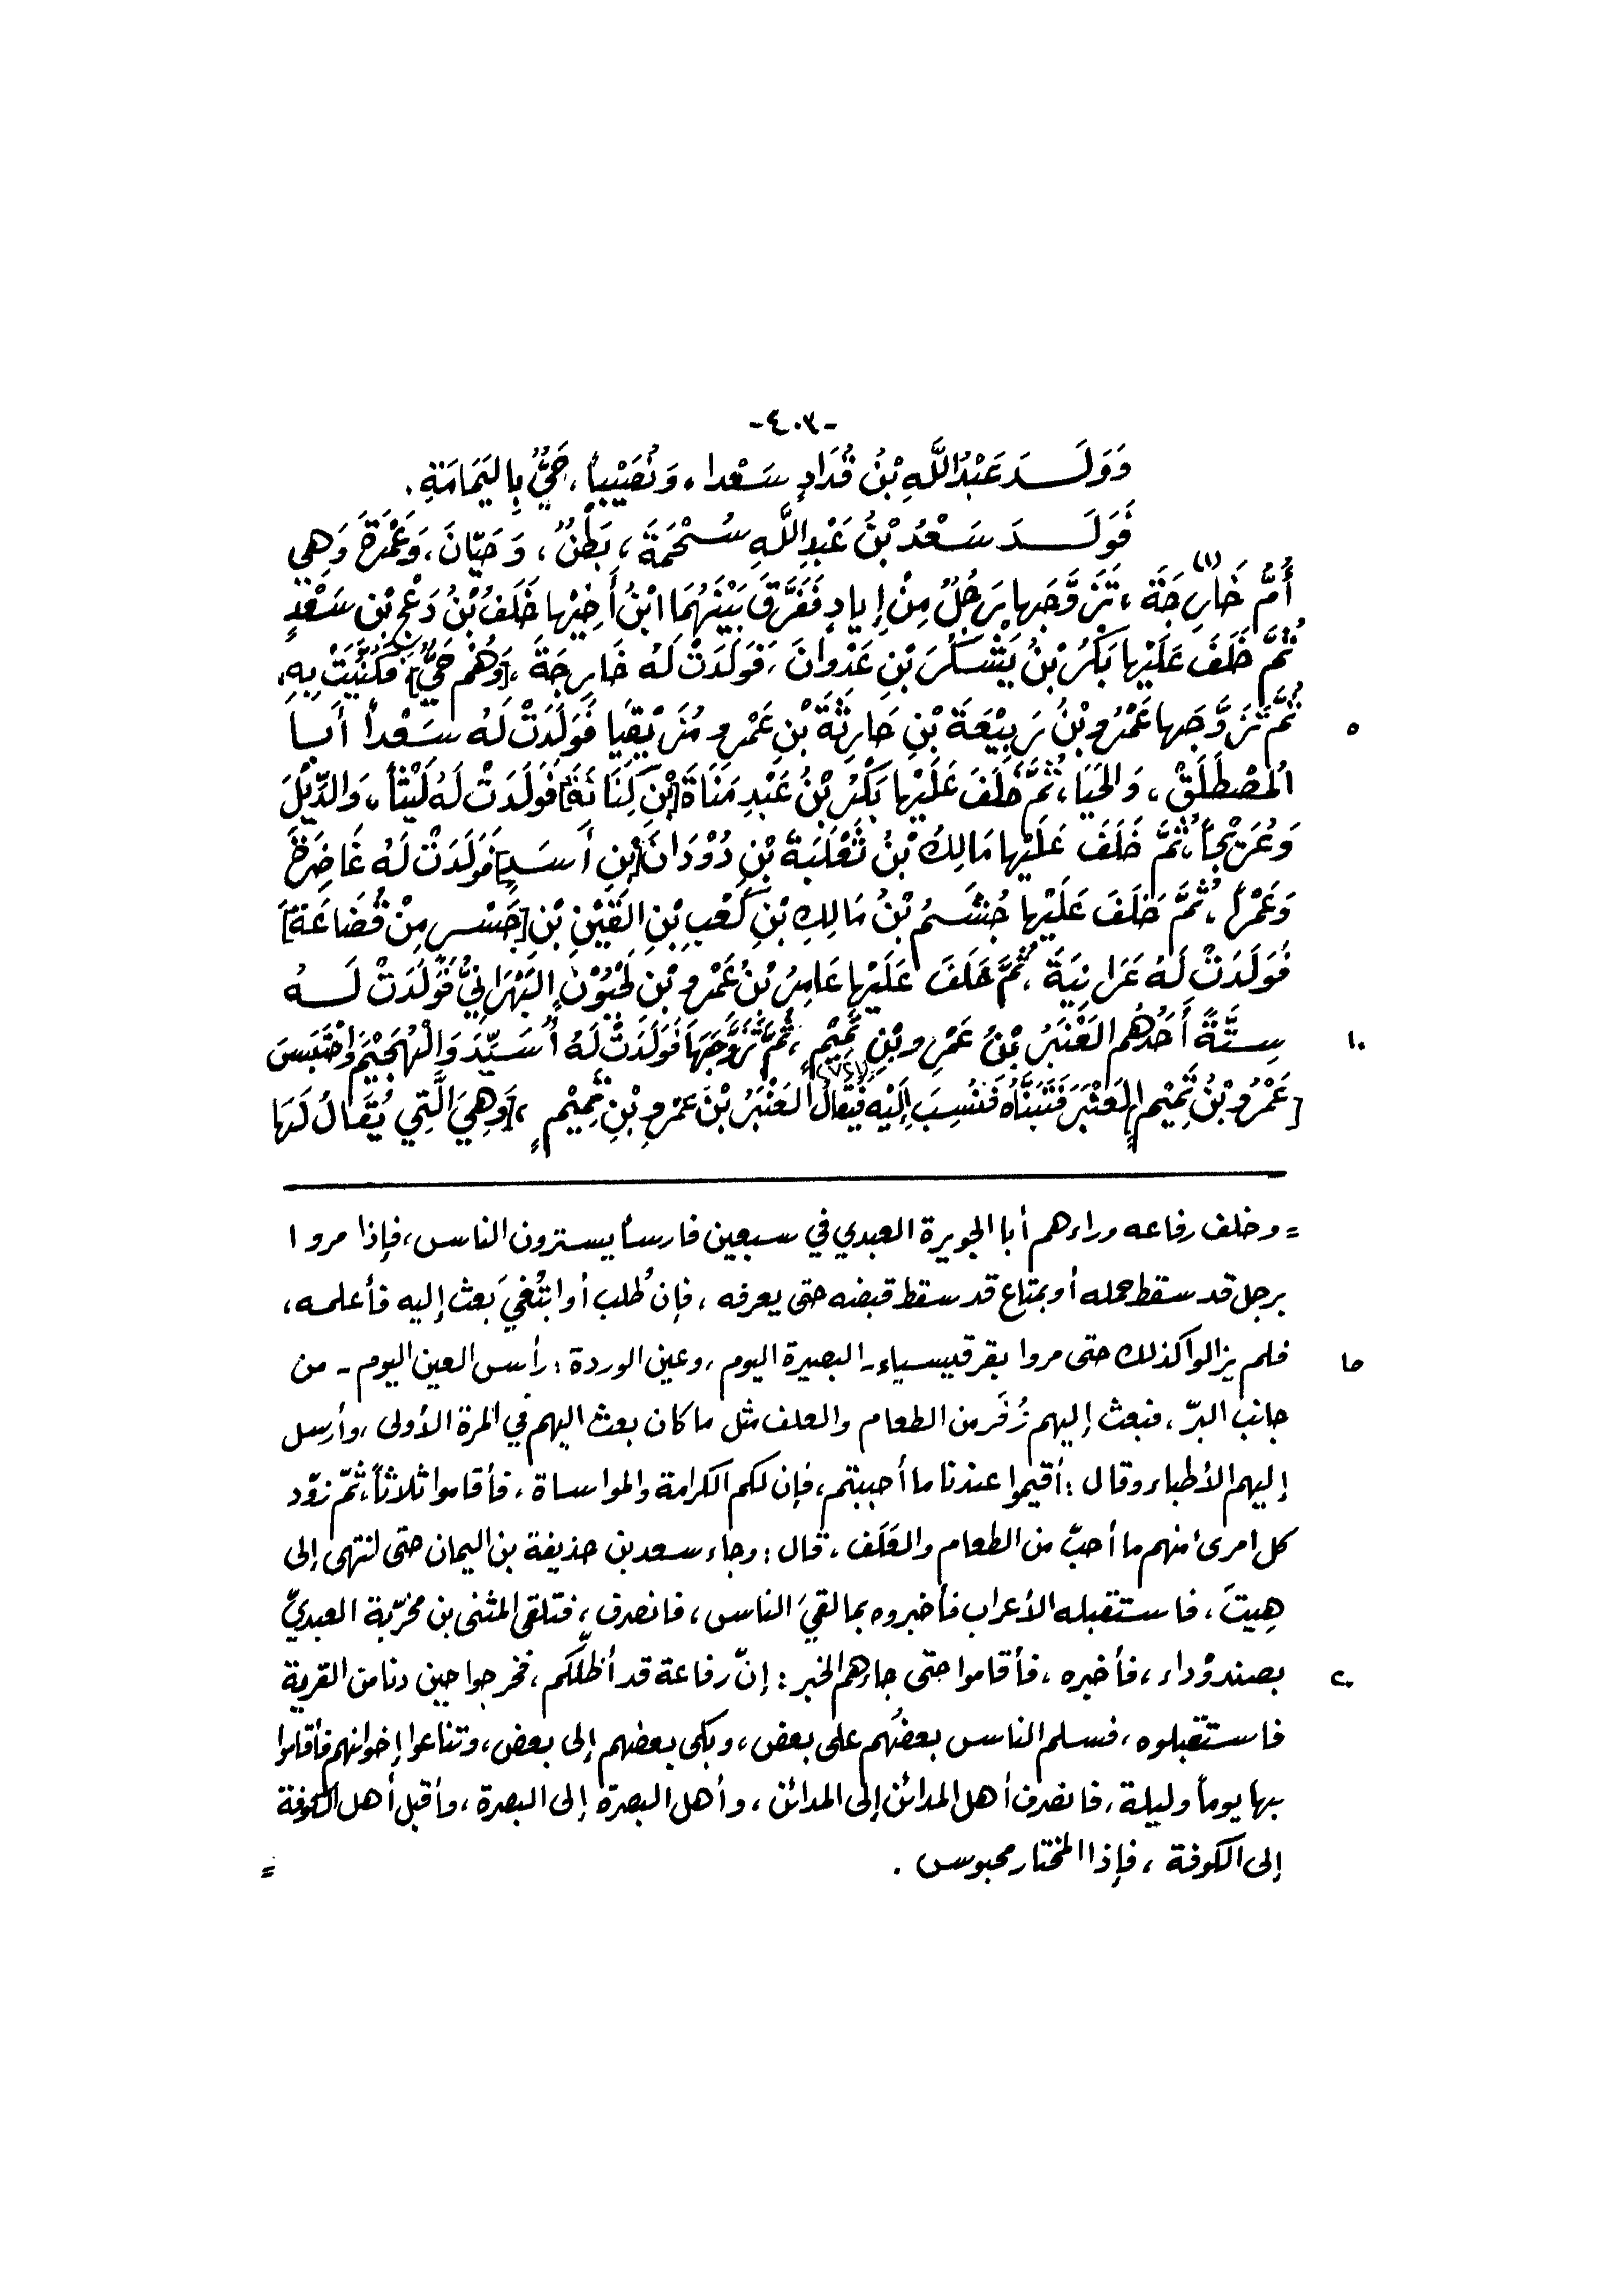 -٤٠٣-
وَوَلَـدَ عَبْدُ اللَّهِ بْنُ قُدَادٍ سَعْدا، وَنُصَيْباً، حَيٌّ بِاليَمَامَةِ.
فَوَلَـدَ سَعْدُ بْنُ عَبْدِ اللَّهِ سُحْمَةَ، بَطْنٌ، وَحَيّانَ، وَعَمْرَةَ وَهِي
أُمُّ خَارِجَةَ (١)، تَزَوَّجَها رَجُلٌ مِنْ إِيادٍ فَفَرَّقَ بَيْنَهُمَا ابْنُ أَخِيْها خَلَفُ بْنُ دَعْجِ بْنِ سَعْدٍ
ثُمَّ خَلَفَ عَلَيْها بَكْرُ بْنُ يَشْكُرَ بْنِ عَدْوانَ، فَوَلَدَتْ لَهُ خَارِجَةَ، [وَهُم حَيٌّ] فَكُنِّيَتْ بِهِ،
٥ ثُمَّ تَزَوَّجَها عَمْرُو بْنُ رَبِيْعَةَ بْنِ حَارِثَةَ بْنِ عَمْرِو مُزَيْقِيَا فَوَلَدَتْ لَهُ سَعْداً أَبا
المُصْطَلَقْ، وَالحَيَا، ثُمَّ خَلَفَ عَلَيْها بَكْرُ بْنُ عَبْدِ مَنَاةَ [بْنِ كِنَانَةَ] فَوَلَدَتْ لَهُ لَيْثاً، وَالدِّيْلَ
وَعُرَيْجاً، ثُمَّ خَلَفَ عَلَيْها مَالِكُ بْنُ ثَعْلَبَةَ بْنِ دُوْدَانَ [بْنِ أَسَـدٍ] فَوَلَدَتْ لَهُ غَاضِرَةَ
وَعَمْراً، ثُمَّ خَلَفَ عَلَيْها جُشَـمُ بْنُ مَالِكِ بْنِ كَعْبِ بْنِ القَيْنِ بْنِ [جَسْـرٍ مِنْ قُضَاعَةَ]
فَوَلَدَتْ لَهُ عَرَانِيَةَ، ثُمَّ خَلَفَ عَلَيْها عَامِرُ بْنُ عَمْرِو بْنِ لَحْيُوْنٍ البَهْرَانِيُّ فَوَلَدَتْ لَـهُ
١٠ سِتَّةً أَحَدُهُم العَنْبَرُ بْنُ عَمْرِو بْنِ تَمِيْمٍ، ثُمَّ تَزَوَّجَهَا فَوَلَدَتْ لَهُ أُسَيِّدَ وَالْهُجَيْمَ وَاحْتَبَسَ
[عَمْرُو بْنُ تَمِيْمٍ] العَنْبَرَ فَتَبَنَّاهُ فَنُسِبَ إِلَيْهِ فَيُقَالُ العَنْبَرُ بْنُ عَمْرِو بْنِ تَمِيْمٍ، [وَهِيَ الَّتِي يُقَالُ لَهَا
= وخلف رفاعه وراءهم أبا الجويرة العبدي في سبعين فارساً يسترون الناس، فإذا مروا
برجل قد سقط حمله أو بمتاع قد سقط قبضه حتى يعرفه، فإن طُلب أو ابتُغيَ بعث إليه فأعلمه،
١٥ فلم يزالوا كذلك حتى مروا بقرقيسياء - البصيرة اليوم، وعين الوردة: رأس العين اليوم - من
جانب البرّ، فبعث إليهم زُفَر من الطعام والعلف مثل ما كان بعث اليهم في المرة الأولى، وأرسل
إليهم الأطباء وقال: أقيموا عندنا ما أحببتم، فإن لكم الكرامة والمواساة، فأقاموا ثلاثاً، ثمّ زوّد
كل امرئ منهم ما أحبّ من الطعام والعَلَف، قال: وجاء سعد بن حذيفة بن اليمان حتى انتهى إلى
هِيتَ، فاستقبله الأعراب فأخبروه بما لقيَ الناس، فانصرف، فتلقى المثنى بن مخرّبة العبديّ
٢٠ بصندوْداء، فأخبره، فأقاموا حتى جاءهم الخبر: إنّ رفاعة قد أظلّكم، فخرجوا حين دنا من القرية
فاستقبلوه، فسلم الناس بعضُهم على بعض، وبكى بعضهم إلى بعض، وتناعوا إخوانهم فأقاموا
بها يوماً وليلة، فانصرف أهل المدائن إلى المدائن، وأهل البصرة إلى البصرة، وأقبل أهل الكوفة
إلى الكوفة، فإذا المختار محبوس. =